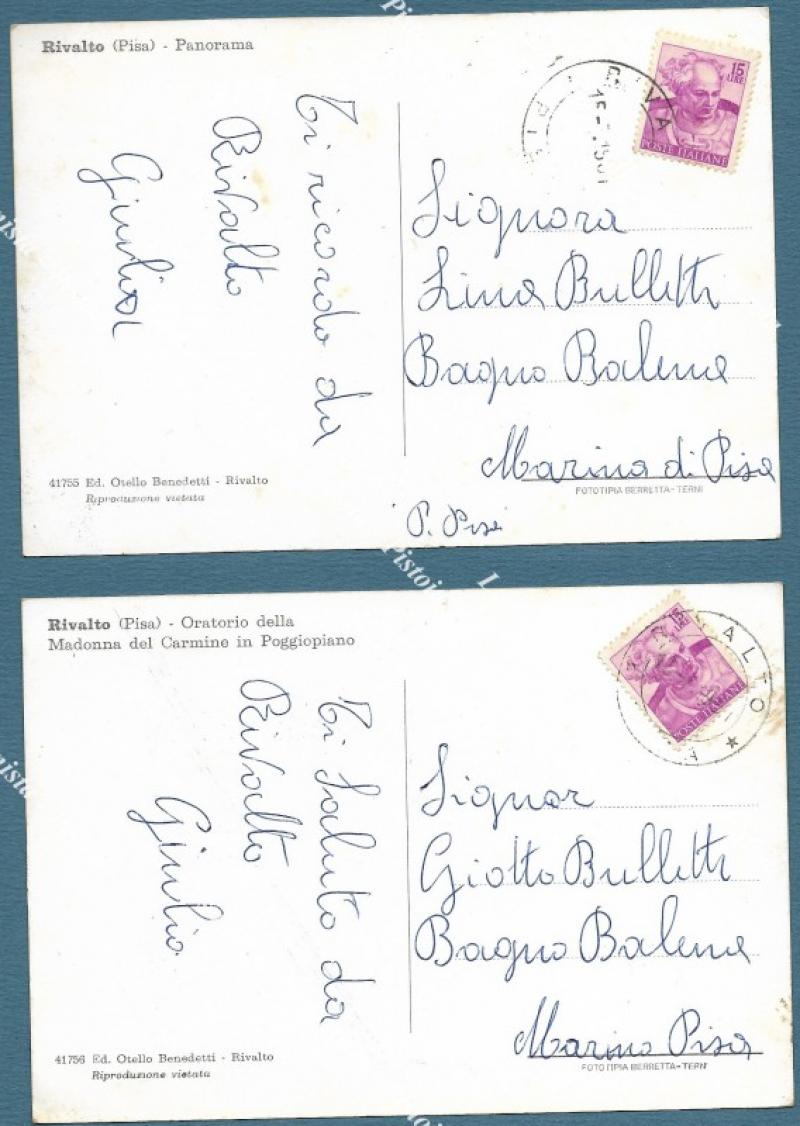 Rivalto (Pisa) - Panorama
15
LIRE
POSTE ITALIANE
Ti ricordo da
Rivalto
Giulia
Signora
Lina Bulletti
Bagno Balena
Marina di Pisa
P. Pisa
41755 Ed. Otello Benedetti - Rivalto
Riproduzione vietata
FOTOTIPIA BERRETTA-TERNI
Pistoi
Rivalto (Pisa) - Oratorio della
Madonna del Carmine in Poggiopiano
15
LIRE
POSTE ITALIANE
Ti Saluto da
Rivalto
Giulia
Signor
Giotto Bulletti
Bagno Balena
Marina Pisa
41756 Ed. Otello Benedetti - Rivalto
Riproduzione vietata
FOTOTIPIA BERRETTA-TERNI